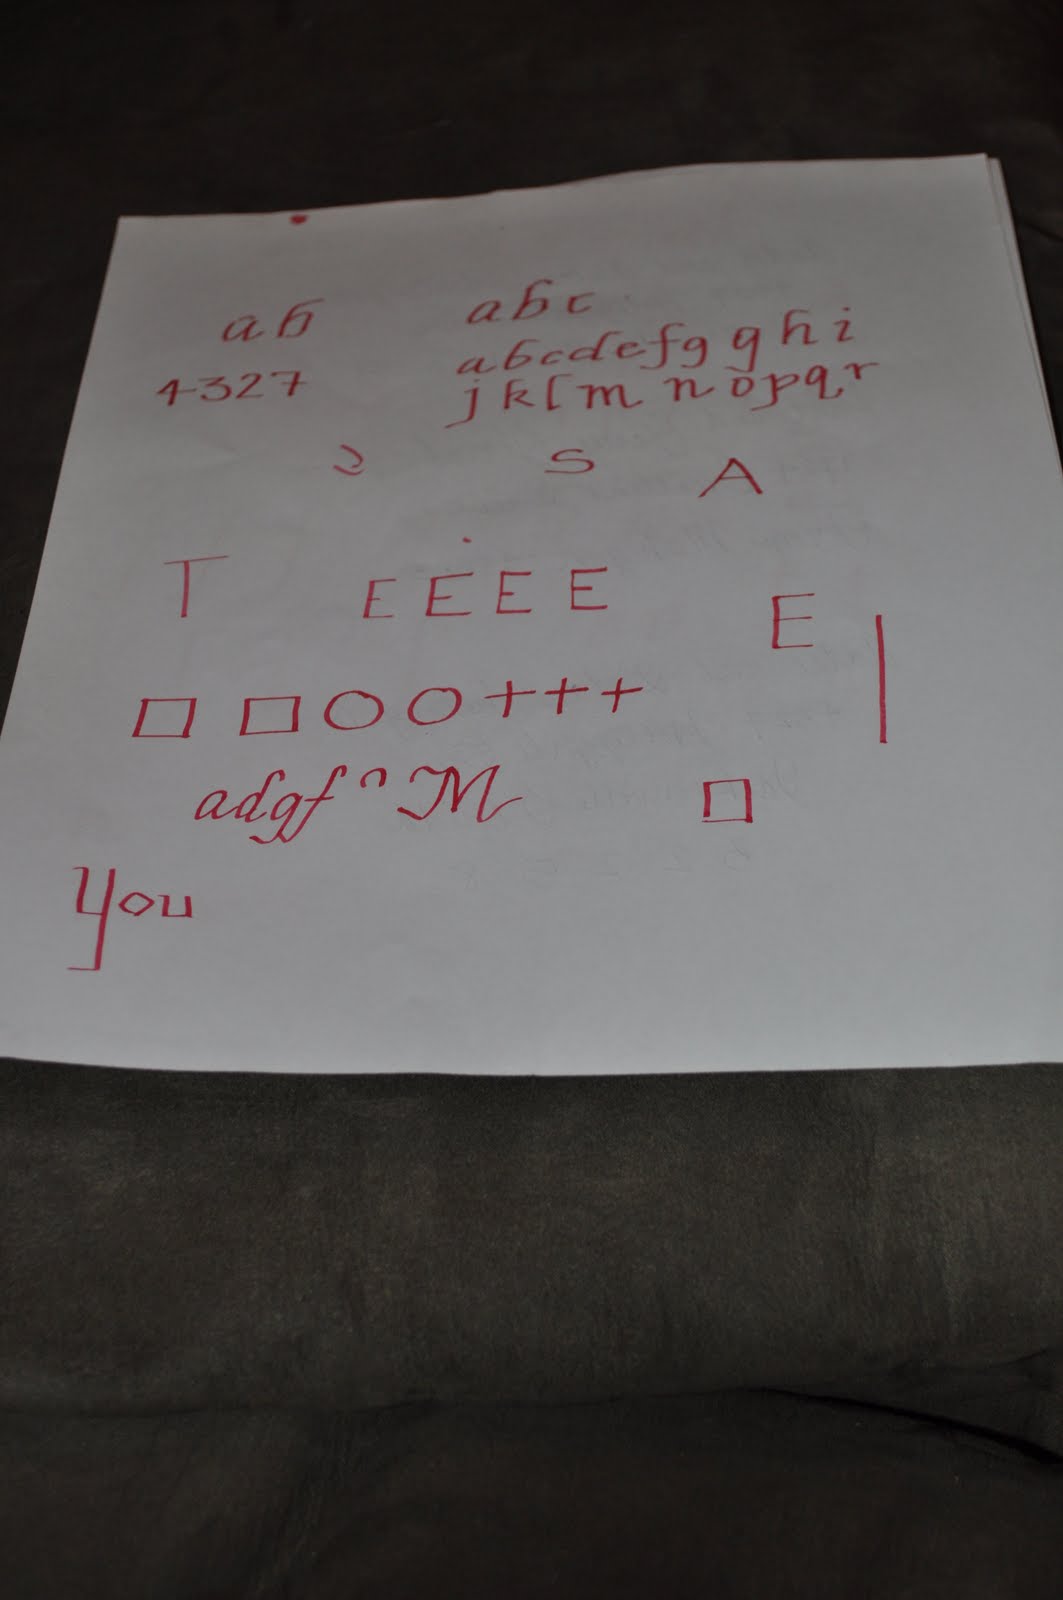 ab abc
abcdefg g h i
4327 jklm nopqr
S A
T E E E E
E
□ □ ○ ○ + + +
adgf M □
you